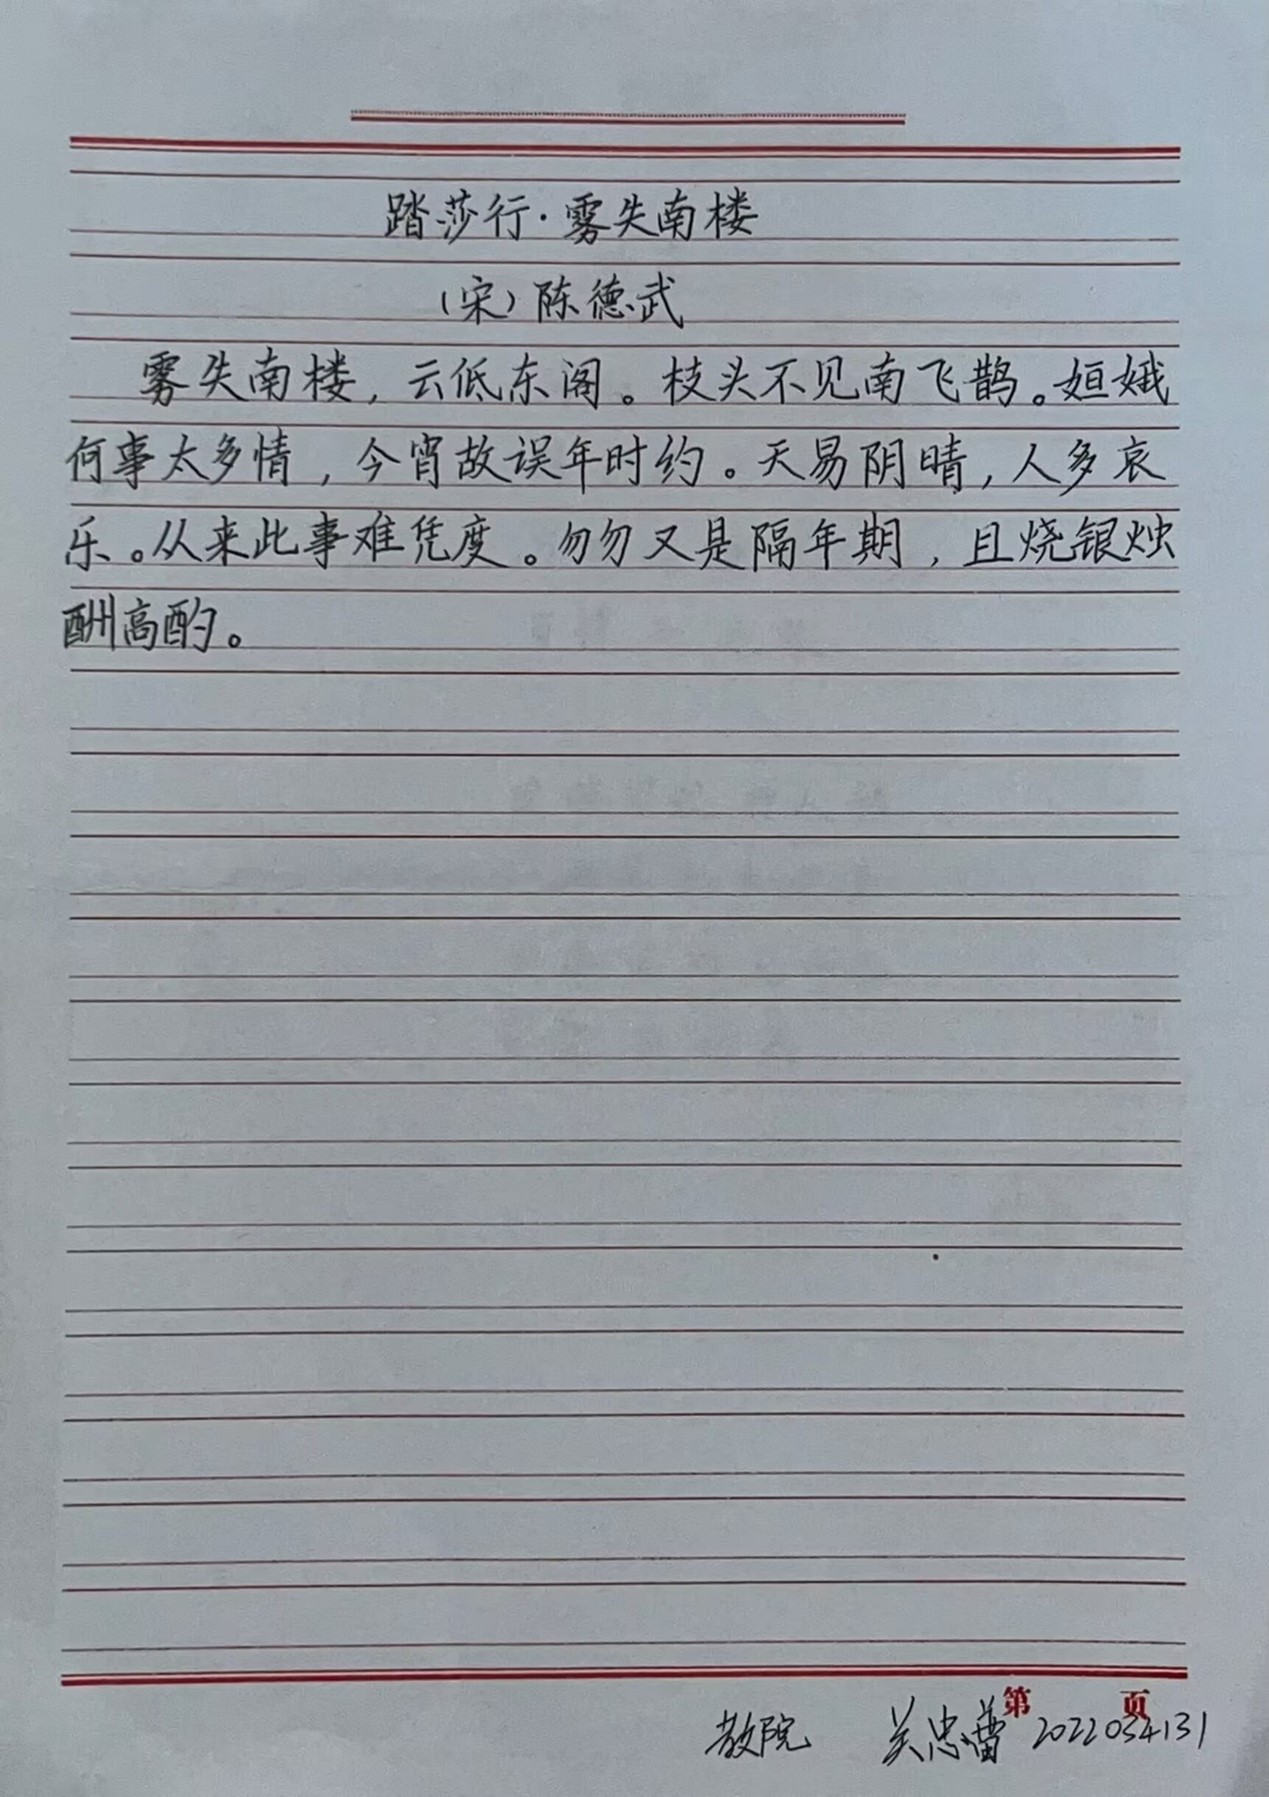 踏莎行·雾失南楼
（宋）陈德武
雾失南楼，云低东阁。枝头不见南飞鹊。姮娥
何事太多情，今宵故误年时约。天易阴晴，人多哀
乐。从来此事难凭度。匆匆又是隔年期，且烧银烛
酬高酌。
第 页
教院 关忠蕾 2022034131